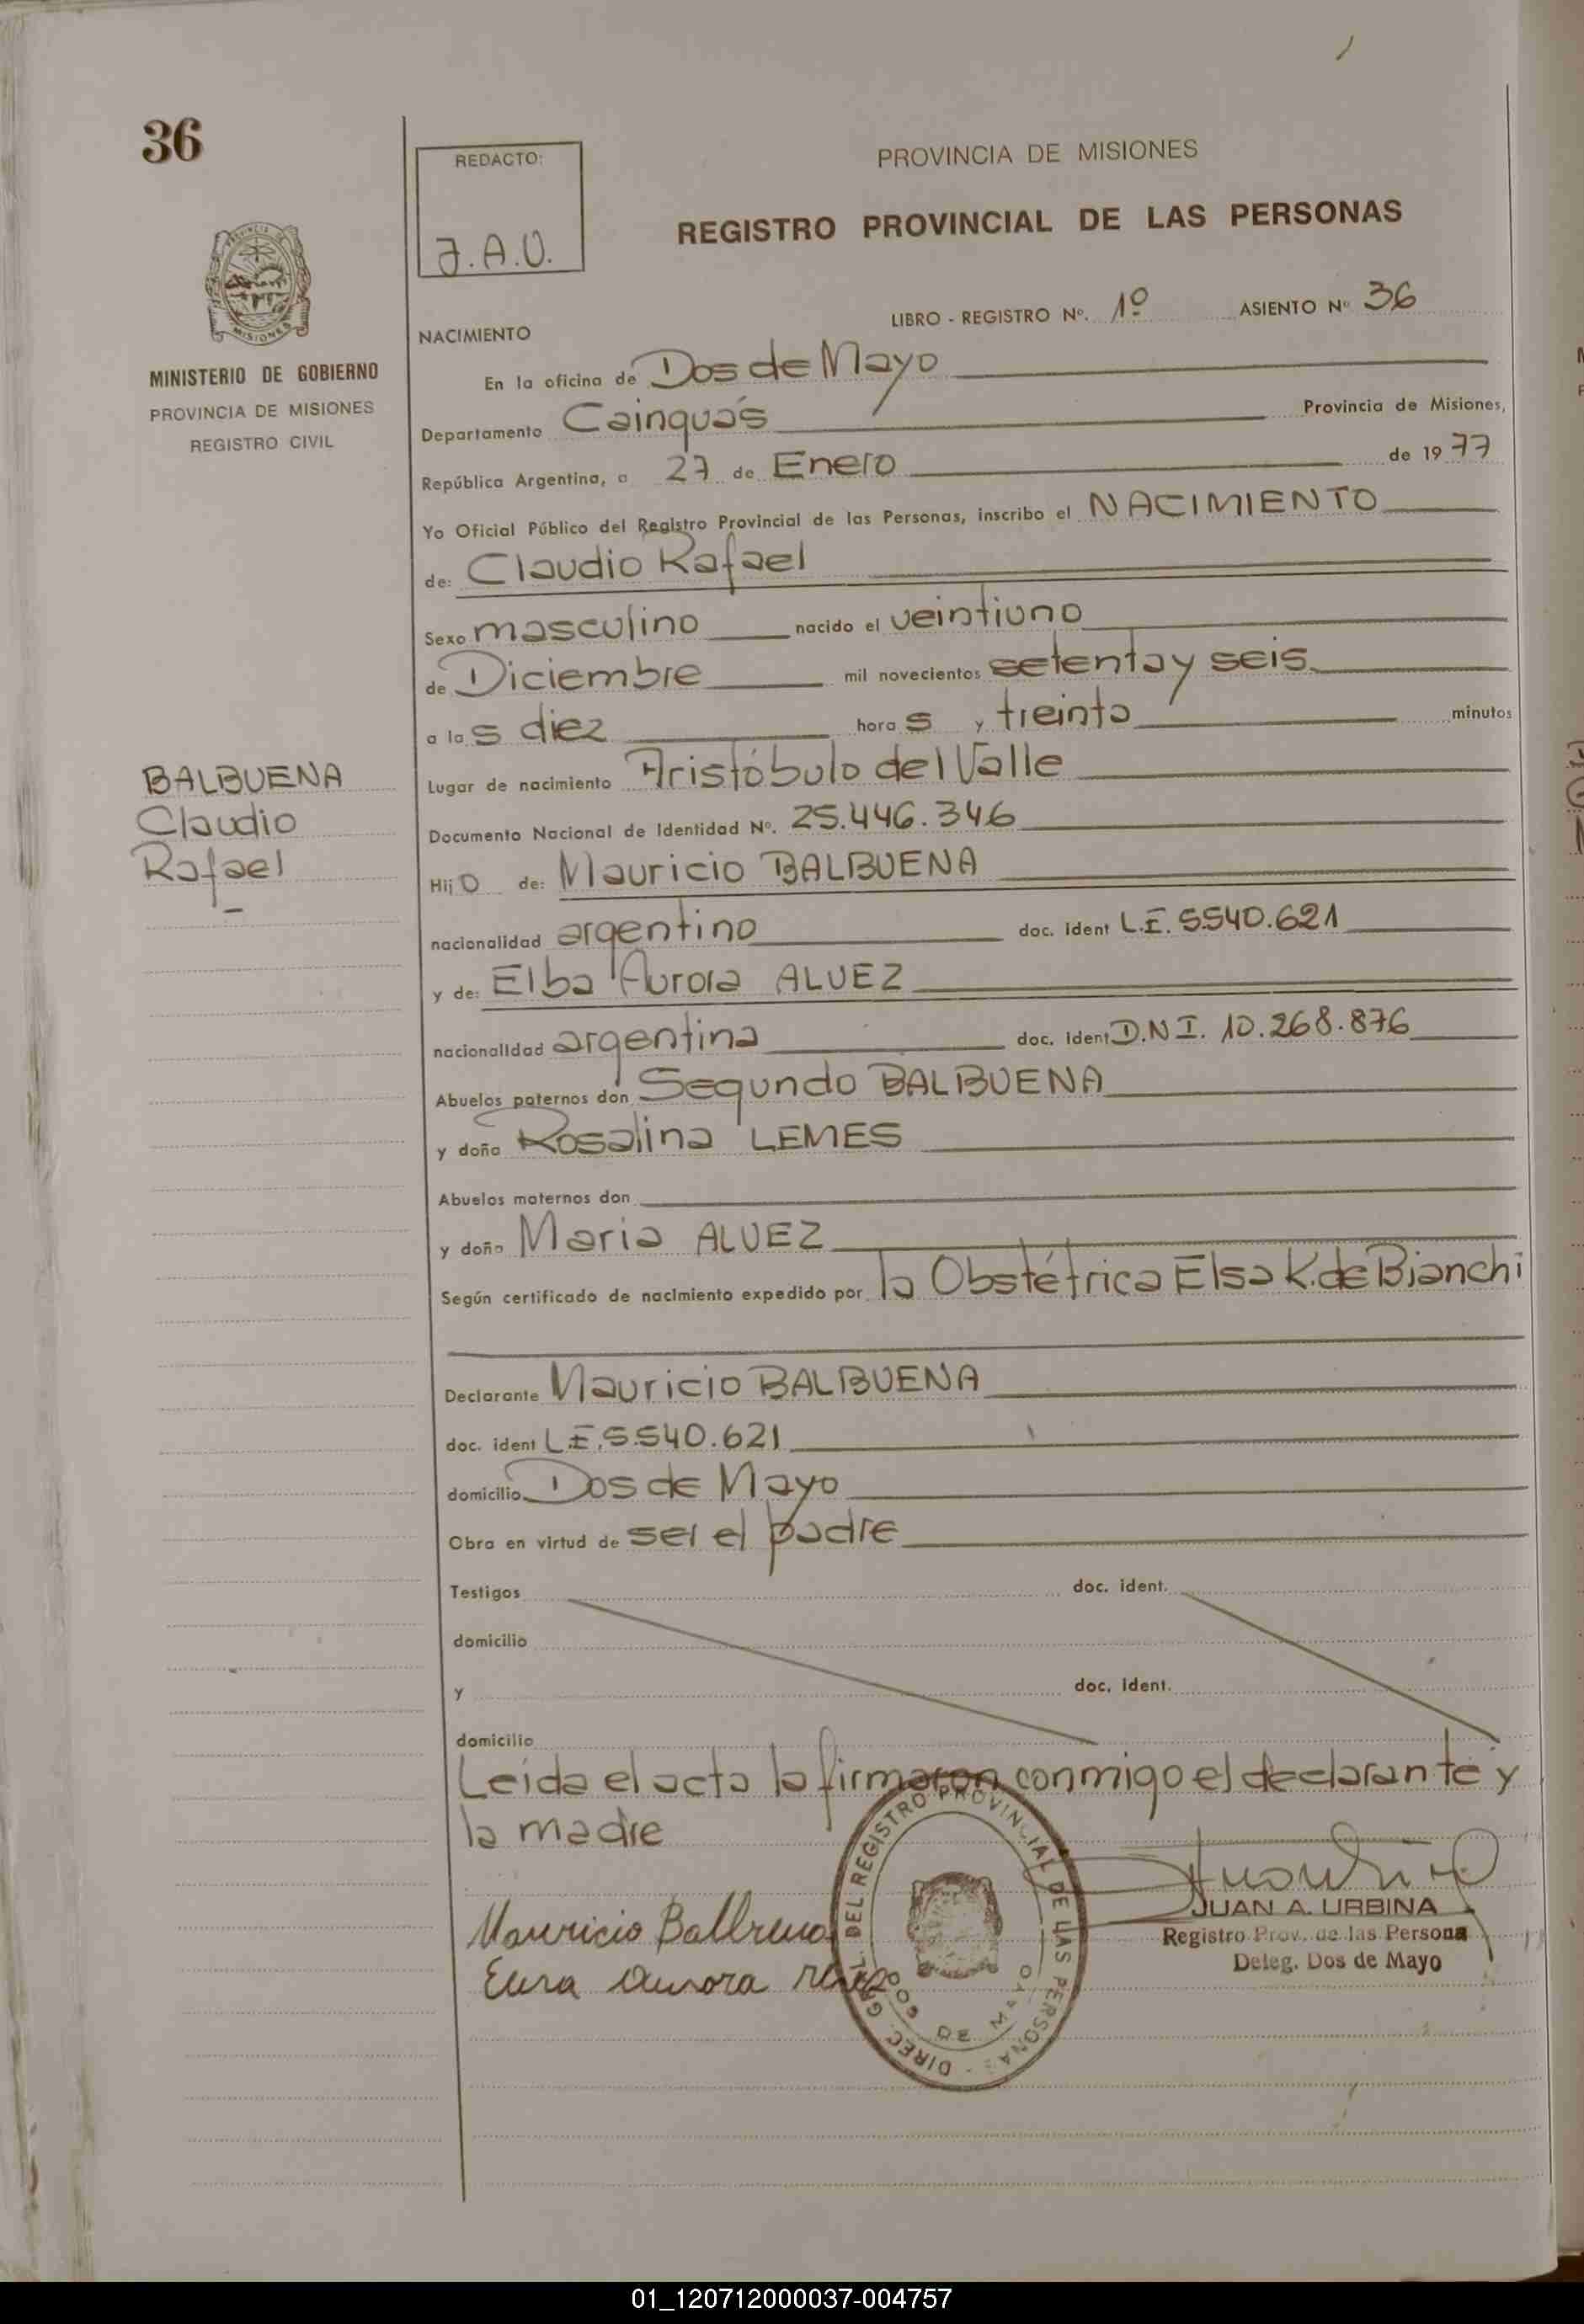 36
REDACTO:
J.A.U.
PROVINCIA DE MISIONES
REGISTRO PROVINCIAL DE LAS PERSONAS
PROVINCIA DE MISIONES
MINISTERIO DE GOBIERNO
PROVINCIA DE MISIONES
REGISTRO CIVIL
LIBRO - REGISTRO Nº. 1º ASIENTO Nº 36
NACIMIENTO
En la oficina de Dos de Mayo
Departamento Cainguás Provincia de Misiones,
República Argentina, a 27 de Enero de 1977
Yo Oficial Público del Registro Provincial de las Personas, inscribo el NACIMIENTO
de: Claudio Rafael
Sexo masculino nacido el veintiuno
de Diciembre mil novecientos setenta y seis
a las diez horas y treinta minutos
Lugar de nacimiento Aristóbulo del Valle
BALBUENA
Claudio
Rafael
Documento Nacional de Identidad Nº. 25.446.346
Hijo de: Mauricio BALBUENA
nacionalidad argentino doc. ident L.E. 5.540.621
y de: Elba Aurora ALVEZ
nacionalidad argentina doc. ident D.N.I. 10.268.876
Abuelos paternos don Segundo BALBUENA
y doña Rosalina LEMES
Abuelos maternos don
y doña Maria ALVEZ
Según certificado de nacimiento expedido por la Obstétrica Elsa K. de Bianchi
Declarante Mauricio BALBUENA
doc. ident L.E. 5.540.621
domicilio Dos de Mayo
Obra en virtud de ser el padre
Testigos doc. ident.
domicilio
y doc. ident.
domicilio
Leída el acta la firmaron conmigo el declarante y
la madre
Mauricio Balbuena
Aurora
DIREC. GRAL. DEL REGISTRO PROVINCIAL DE LAS PERSONAS
DOS DE MAYO
JUAN A. URBINA
Registro Prov. de las Persona
Deleg. Dos de Mayo
01_120712000037-004757